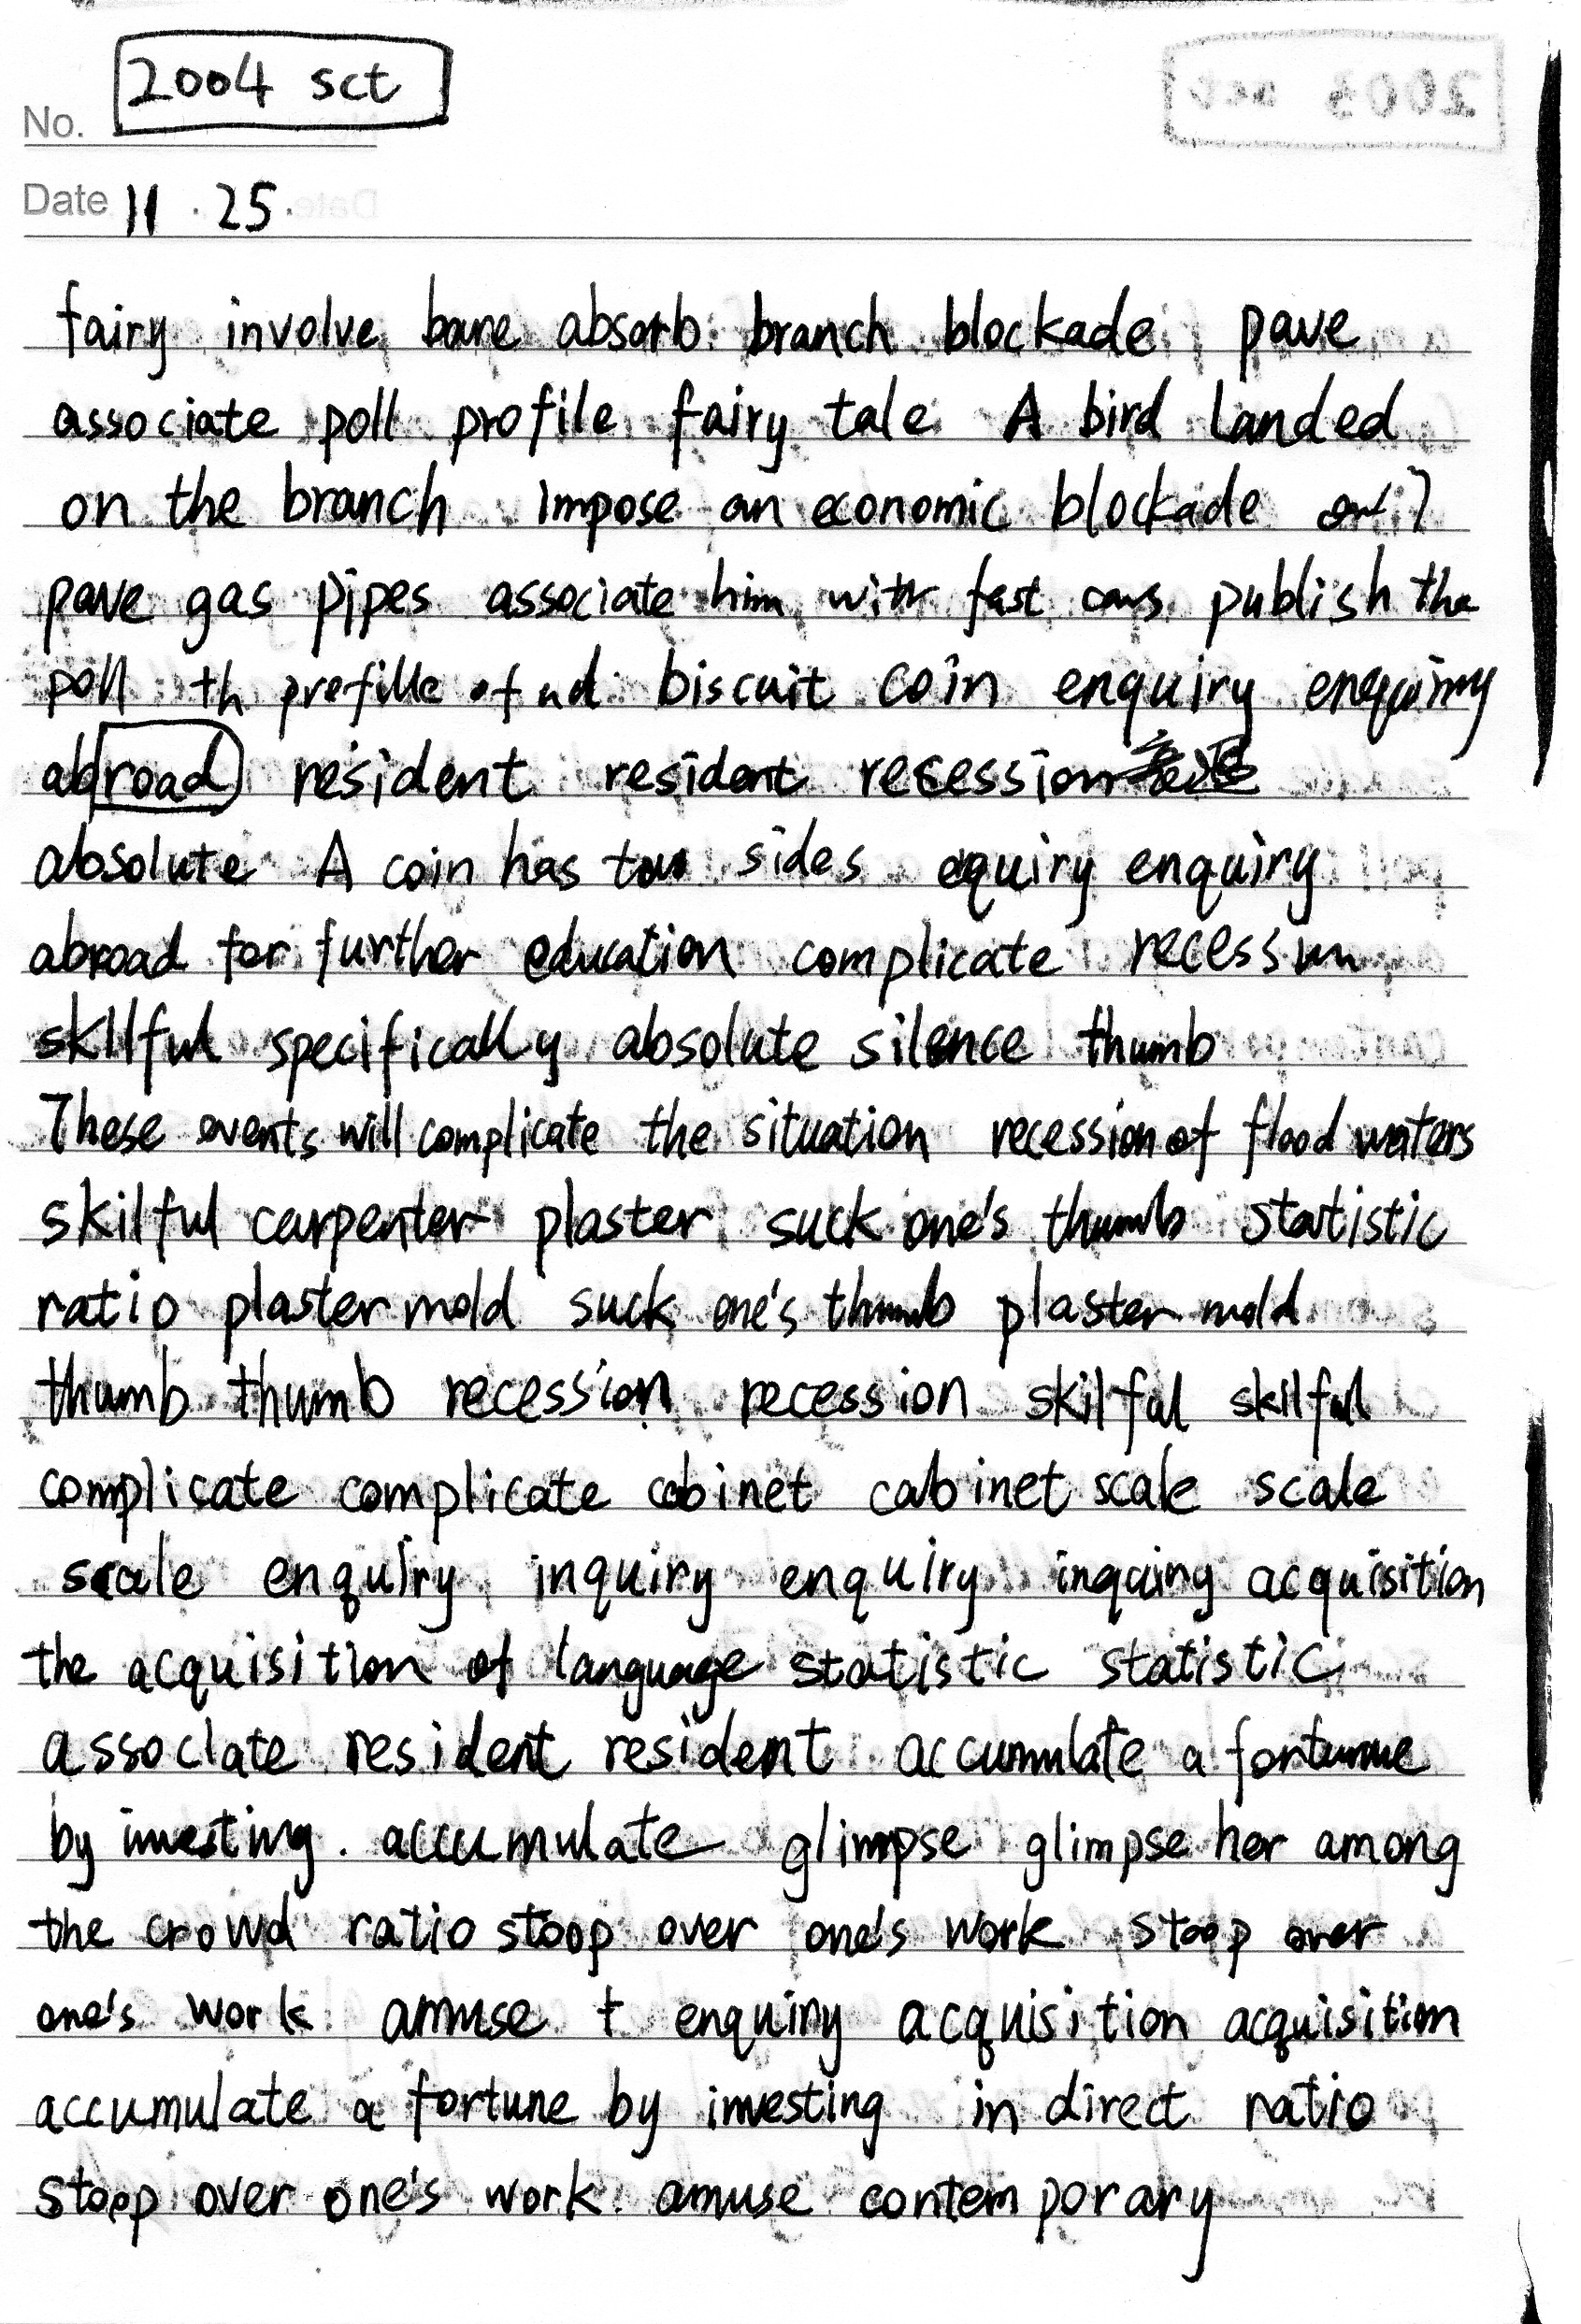 2004 sct
No.
Date 11 . 25.
fairy involve bare absorb branch blockade pave
associate poll profile fairy tale A bird landed
on the branch impose an economic blockade
pave gas pipes associate him with fast cars publish the
poll th of biscuit coin enquiry enquiry
abroad resident resident recession
absolute A coin has two sides equiry enquiry
abroad for further education complicate
skilful specifically absolute silence thumb
These events will complicate the situation recession of flood waters
skilful carpenter plaster suck one's thumb statistic
ratio plaster mold suck one's thumb plaster mold
thumb thumb recession recession skilful skilful
complicate complicate cabinet cabinet scale scale
scale enquiry inquiry enquiry inquiry acquisition
the acquisition of language statistic statistic
associate resident resident accumulate a fortune
by investing. accumulate glimpse glimpse her among
the crowd ratio stoop over one's work stoop over
one's work amuse t enquiry acquisition acquisition
accumulate a fortune by investing in direct ratio
stoop over one's work amuse contemporary